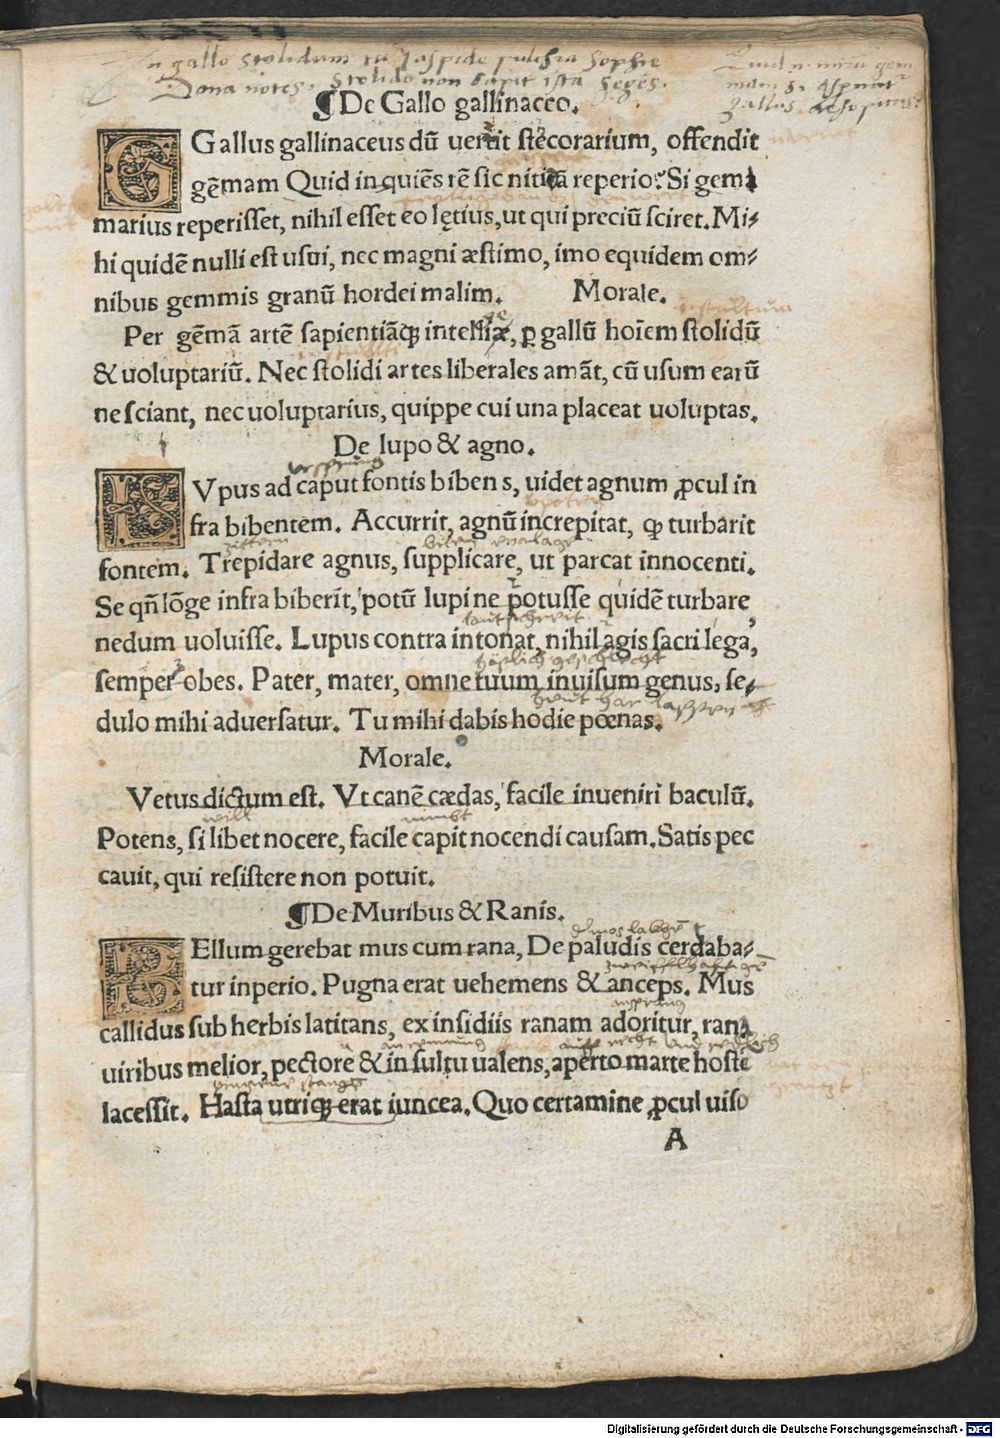 In gallo stolidum tu Iaspide pulchra sophie
Dona notes. Stolido non capit ista seges.
¶De Gallo gallinaceo.
Gallus gallinaceus dū uertit stēcorarium, offendit
gēmam Quid inquiēs rē sic nitidā reperio? Si gem⸗
marius reperisset, nihil esset eo lętius, ut qui preciū sciret. Mi⸗
hi quidē nulli est usui, nec magni æstimo, imo equidem om⸗
nibus gemmis granū hordei malim. Morale.
Per gēmā artē sapientiāꝗ; , ꝑ gallū hoīem stolidū
& uoluptariū. Nec stolidi artes liberales amāt, cū usum earū
nesciant, nec uoluptarius, quippe cui una placeat uoluptas.
De lupo & agno.
Vpus ad caput fontis bibens, uidet agnum ꝓcul in
fra bibentem. Accurrit, agnū increpitat, ꝙ turbarit
fontem. Trepidare agnus, supplicare, ut parcat innocenti.
Se qn̄ lōge infra biberit, potū lupi ne potusse quidē turbare,
nedum uoluisse. Lupus contra intonat, nihil agis sacrilega,
semper obes. Pater, mater, omne tuum inuisum genus, se⸗
dulo mihi aduersatur. Tu mihi dabis hodie pœnas.
Morale.
Vetus dictum est. Vt canē cædas, facile inueniri baculū.
will nimbt
Potens, si libet nocere, facile capit nocendi causam. Satis pec
cauit, qui resistere non potuit.
¶De Muribus & Ranis.
BEllum gerebat mus cum rana, De paludis certaba⸗
tur inperio. Pugna erat uehemens & anceps. Mus
callidus sub herbis latitans, ex insidiis ranam adoritur, rana
uiribus melior, pectore & insultu ualens, aperto marte hostē
lacessit. Hasta utriꝗ; erat iuncea. Quo certamine ꝓcul uiso
A
Digitalisierung gefördert durch die Deutsche Forschungsgemeinschaft - DFG